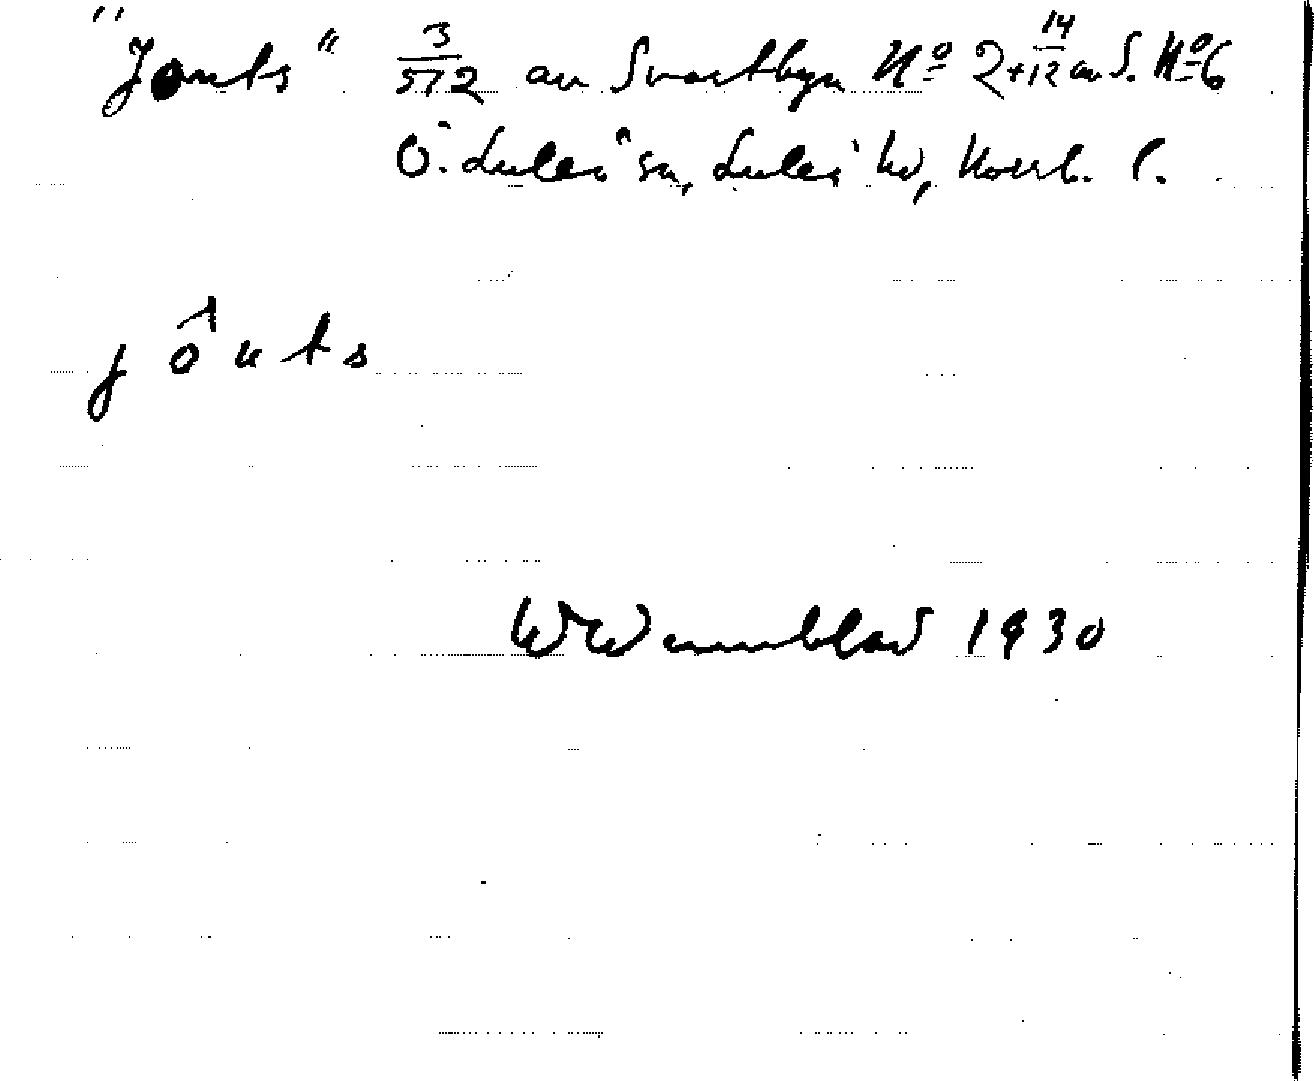 "Jonts" 3/572 av Svartbyn No 2 + 14/12 av S. No 6
Ö. Luleå sn, Luleå hd, Norrb. l.
j ô n t s
W Wennblad 1930